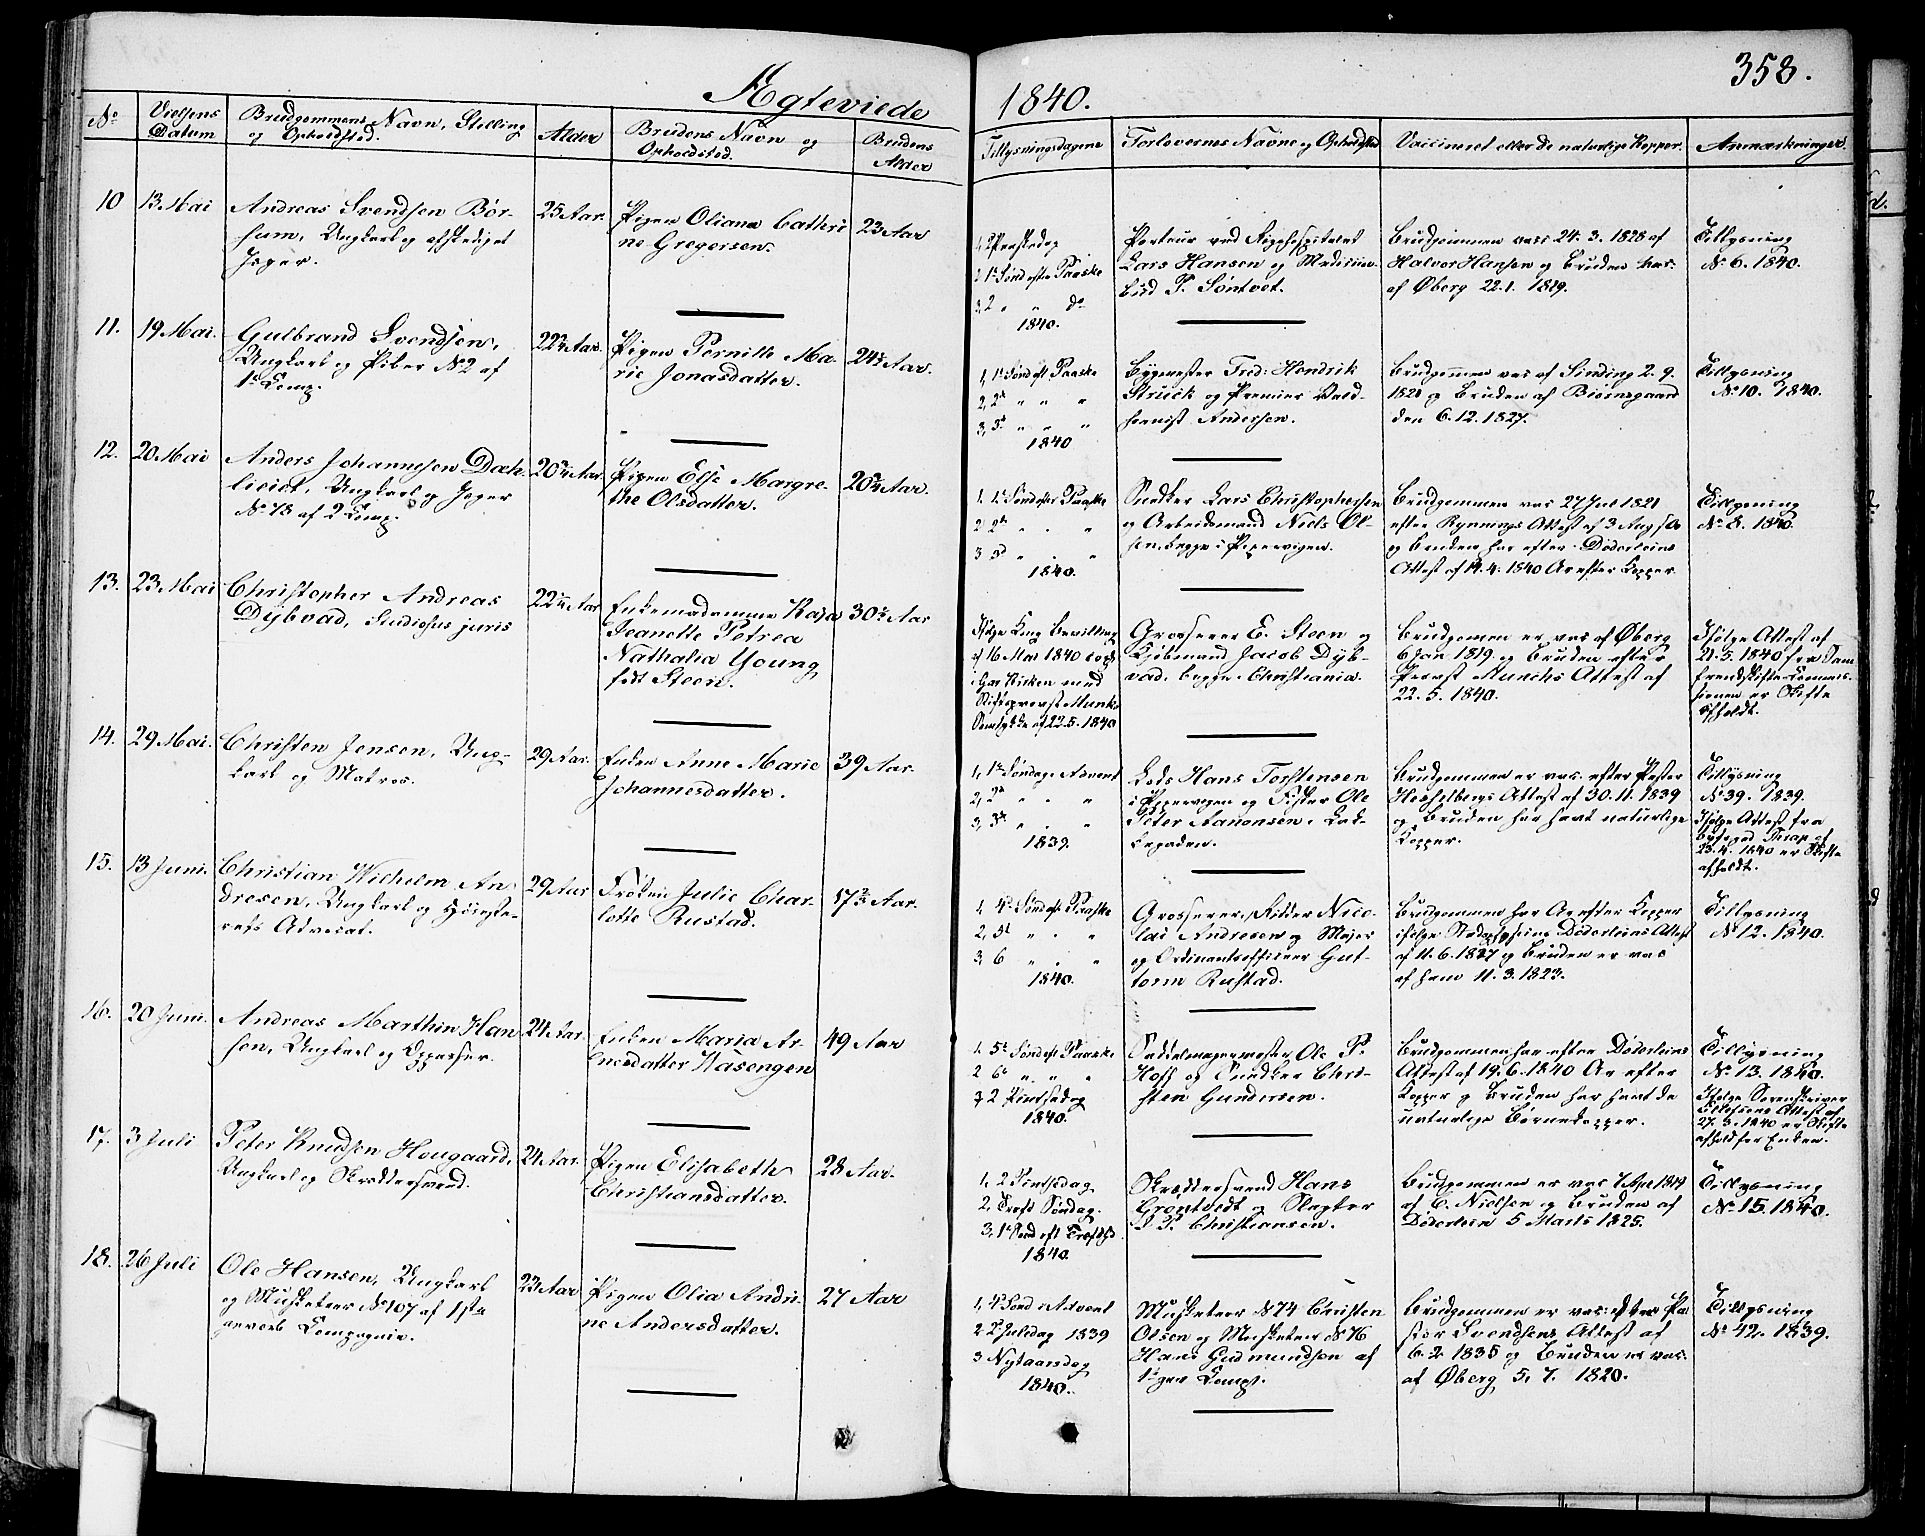 358.
Ægteviede 1840.
No
Vielsens Datum
Brudgommens Navn, Stilling og Opholdsted.
Alder
Brudens Navn og Opholdsted.
Brudens Alder
Tillysningsdagene
Forlovernes Navne og Opholdsted
Vaccineret eller de naturlige Kopper.
Anmærkninger.
10
13 Mai
Andreas Svendsen Bør-
hum, Ungkarl og afskediget
Jæger.
25 Aar.
Pigen Oliana Cathri
ne Gregersen.
23 Aar
1, 2 Paaskedag
2 1ste Sønd efter Paaske
3, 2 " " do
1840.
Porteur ved Rigshospitalet
Lars Hansen og
bud P. Søntvet.
Brudgommen vac: 24. 3. 1828 af
Halvor Hansen og Bruden vac.
af Øberg 22. 1. 1819.
Tillysning
No 6. 1840.
11.
19 Mai.
Gulbrand Svendsen,
Ungkarl og Piber No 2 af
1ste Comp.
22 Aar.
Pigen Pernille Ma-
rie Jonasdatter.
24 Aar.
1, 1ste Sønd eft Paaske
2, 2den " " "
3, 3die " " "
1840
Bygmester Fred: Hendrik
Struck og Premier Vald-
hornist Andersen.
Brudgommen vac af Sinding 2. 9.
1820 og Bruden af Biørnsgaard
den 6. 12. 1827.
Tillysning
No 10. 1840.
12.
20 Mai
Anders Johannesen Dæh-
lieiet, Ungkarl og Jæger
No 73 af 2 Comp.
20 Aar
Pigen Else Margre-
the Olsdatter.
20 Aar.
1. 1ste Sønd efter Paaske
2. 2den " " "
3 3die " " "
1840.
Snedker Lars Christophersen
og Arbeidsmand Niels Ol-
sen, begge i Pipervigen.
Brudgommen vac 27 Jul 1821
efter Rynnings Attest af 3 Aug
og Bruden har efter Döderleins
Attest af 14. 4. 1840 Ar efter Kopper.
Tillysning
No 8. 1840.
13.
23 Mai
Christopher Andreas
Dybvad, Studiosus juris
22 Aar
Enkemadamme Kaja
Jeanette Petrea
Nathalia Young
født Steen.
30 Aar
Ifølge Kng Bevilling
af 16 Mai 1840
Kirken med
Stiftsprovst Munchs
Samtykke af 22. 5. 1840
Grosserer E. Steen og
Kjøbmand Jacob Dyb-
vad, begge i Christiania.
Brudgommen er vac af Øberg
6 Jan 1819 og Bruden efter
Provst Munchs Attest af
22. 5. 1840.
Ifølge Attest af
21. 5. 1840 fra Sam
frendskifte-Commis-
sionen er Skifte
afholdt.
14.
29 Mai.
Christen Jensen, Ung-
karl og Matros.
29 Aar.
Enken Anne Marie
Johannesdatter.
39 Aar.
1, 1ste Søndag i Advent
2, 2den " " "
3, 3die " " "
1839.
Lods Hans Torstensen
i Pipervigen og Fisker Ole
Peter Aanonsen i Lak-
kegaden.
Brudgommen er vac. efter Pastor
Hesselbergs Attest af 30. 11. 1839
og Bruden har havt naturlige
Kopper.
Tillysning
No 39. 1839.
Ifølge Attest fra
Byfoged Ferap af
23. 4. 1840 er Skifte
afholdt.
15.
13 Juni.
Christian Wilhelm An
dresen, Ungkarl og Høieste-
rets Advocat.
29 Aar
Frøken Julie Char-
lotte Rustad.
17 Aar.
1, 4de Sønd eft Paaske
2, 5te " " "
3, 6 " " "
1840.
Grosserer, Ridder Nico-
lai Andresen og Major
og Ordinantsofficeer Gut-
torm Rustad.
Brudgommen har Ar efter Kopper
ifølge Stadsphysicus Döderleins Attest
af 11. 6. 1827 og Bruden er vac
af ham 11. 3. 1823.
Tillysning
No 12. 1840.
16.
20 Juni.
Andreas Marthin Han
sen, Ungkarl og Opparter.
24 Aar.
Enken Maria Ar-
nesdatter Kåsengen
49 Aar
1. 5te Sønd eft Paaske
2 6te " " "
3 2 Pintsedag
1840.
Saddelmagermester Ole P.
Hoff og Snedker Chri-
sten Gundersen.
Brudgommen har efter Döderleins
Attest af 19. 6. 1840 Ar efter
Kopper og Bruden har havt de
naturlige Børnekopper.
Tillysning
No 13. 1840.
Ifølge Sorenskriver
Attest af
27. 3. 1840 er Skifte
afholdt for Enken.
17.
3 Juli
Peter Knudsen Hougaard,
Ungkarl og Skræddersvend.
24 Aar.
Pigen Elisabeth
Christiansdatter.
28 Aar.
1, 2 Pintsedag
2, Tref Søndag.
3, 1ste Sønd eft Trefoldh.
1840.
Skræddersvend Hans
Grontvedt og Slagter
P. Christiansen.
Brudgommen er vac 7 Apr 1819
af C. Nielsen og Bruden af
Döderlein 5 Marts 1825.
Tillysning
No 15. 1840.
18.
26 Juli
Ole Hansen, Ungkarl
og Musketeer No 107 af 1ste
gevorb Compagnie.
23 Aar
Pigen Olia Andri-
ne Andersdatter.
27 Aar
1, 4de Sønd i Advent
2 2 Juledag 1839
3 Nytaarsdag
1840.
Musketeer No 74 Christen
Olsen og Musketeer No 76
Hans Gudmundsen af
1ste gev Comp.
Brudgommen er vac efter Pa-
stor Svendsens Attest af
6. 2 1835 og Bruden er vac.
af Øberg 5. 7. 1820.
Tillysning
No 42. 1839.